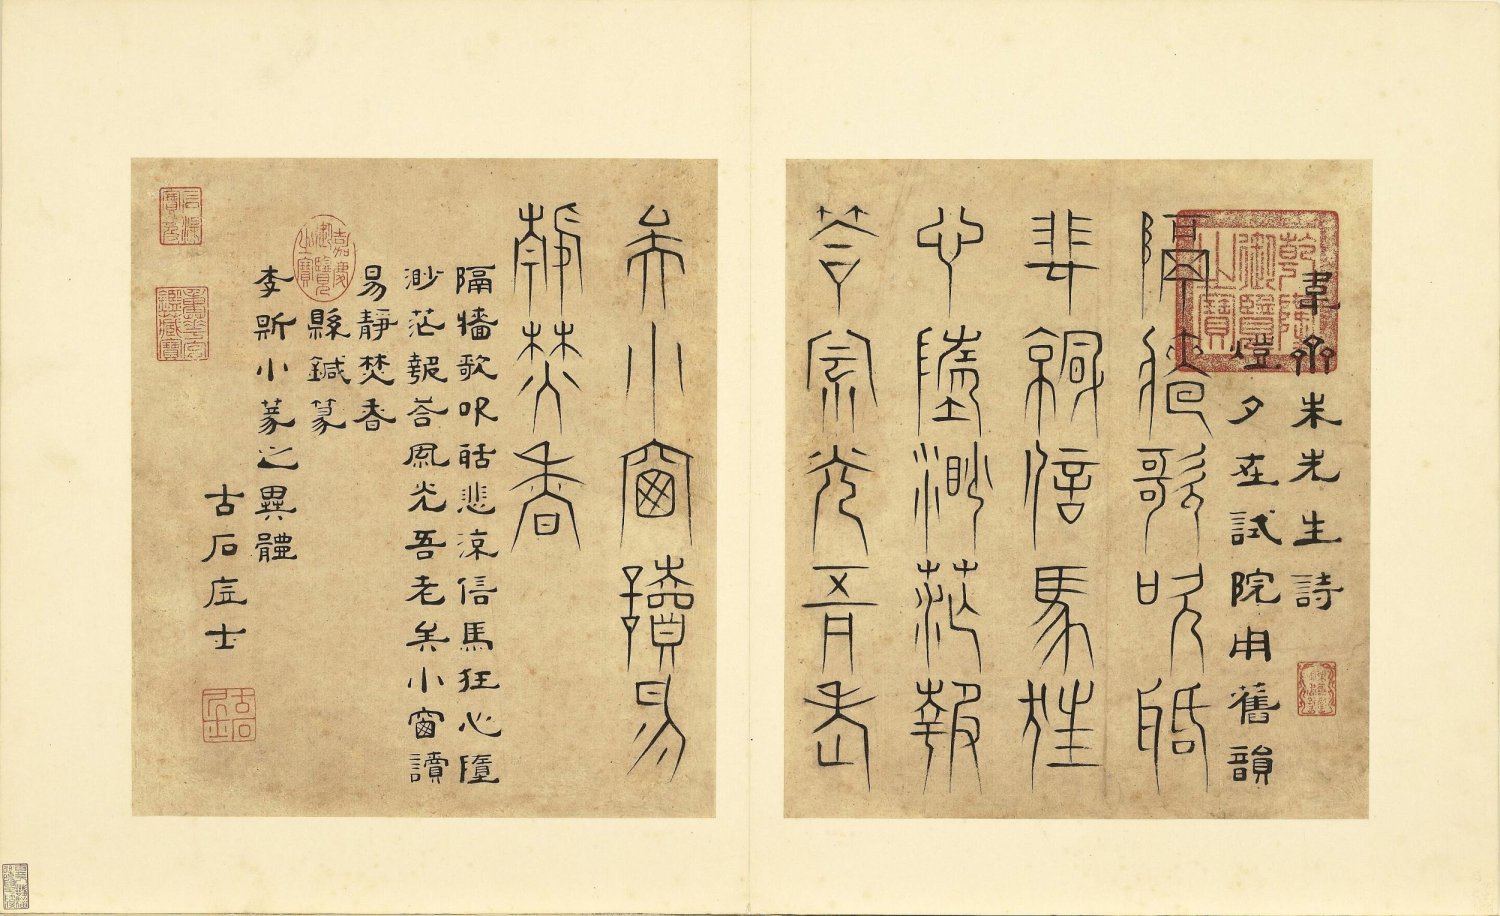 韋齋朱先生詩
燈夕在試院用舊韻
隔牆歌吹聒
悲涼信馬狂
心墮渺茫報
荅風光吾老
矣小窗讀易
靜焚香
隔牆歌吹聒悲涼信馬狂心墮
渺茫報荅風光吾老矣小窗讀
易靜焚香
縣鍼篆
李斯小篆之異體
古石居士
乾隆御覽之寶
嘉慶御覽之寶
石渠寶笈
重華宮鑑藏寶
古石居士